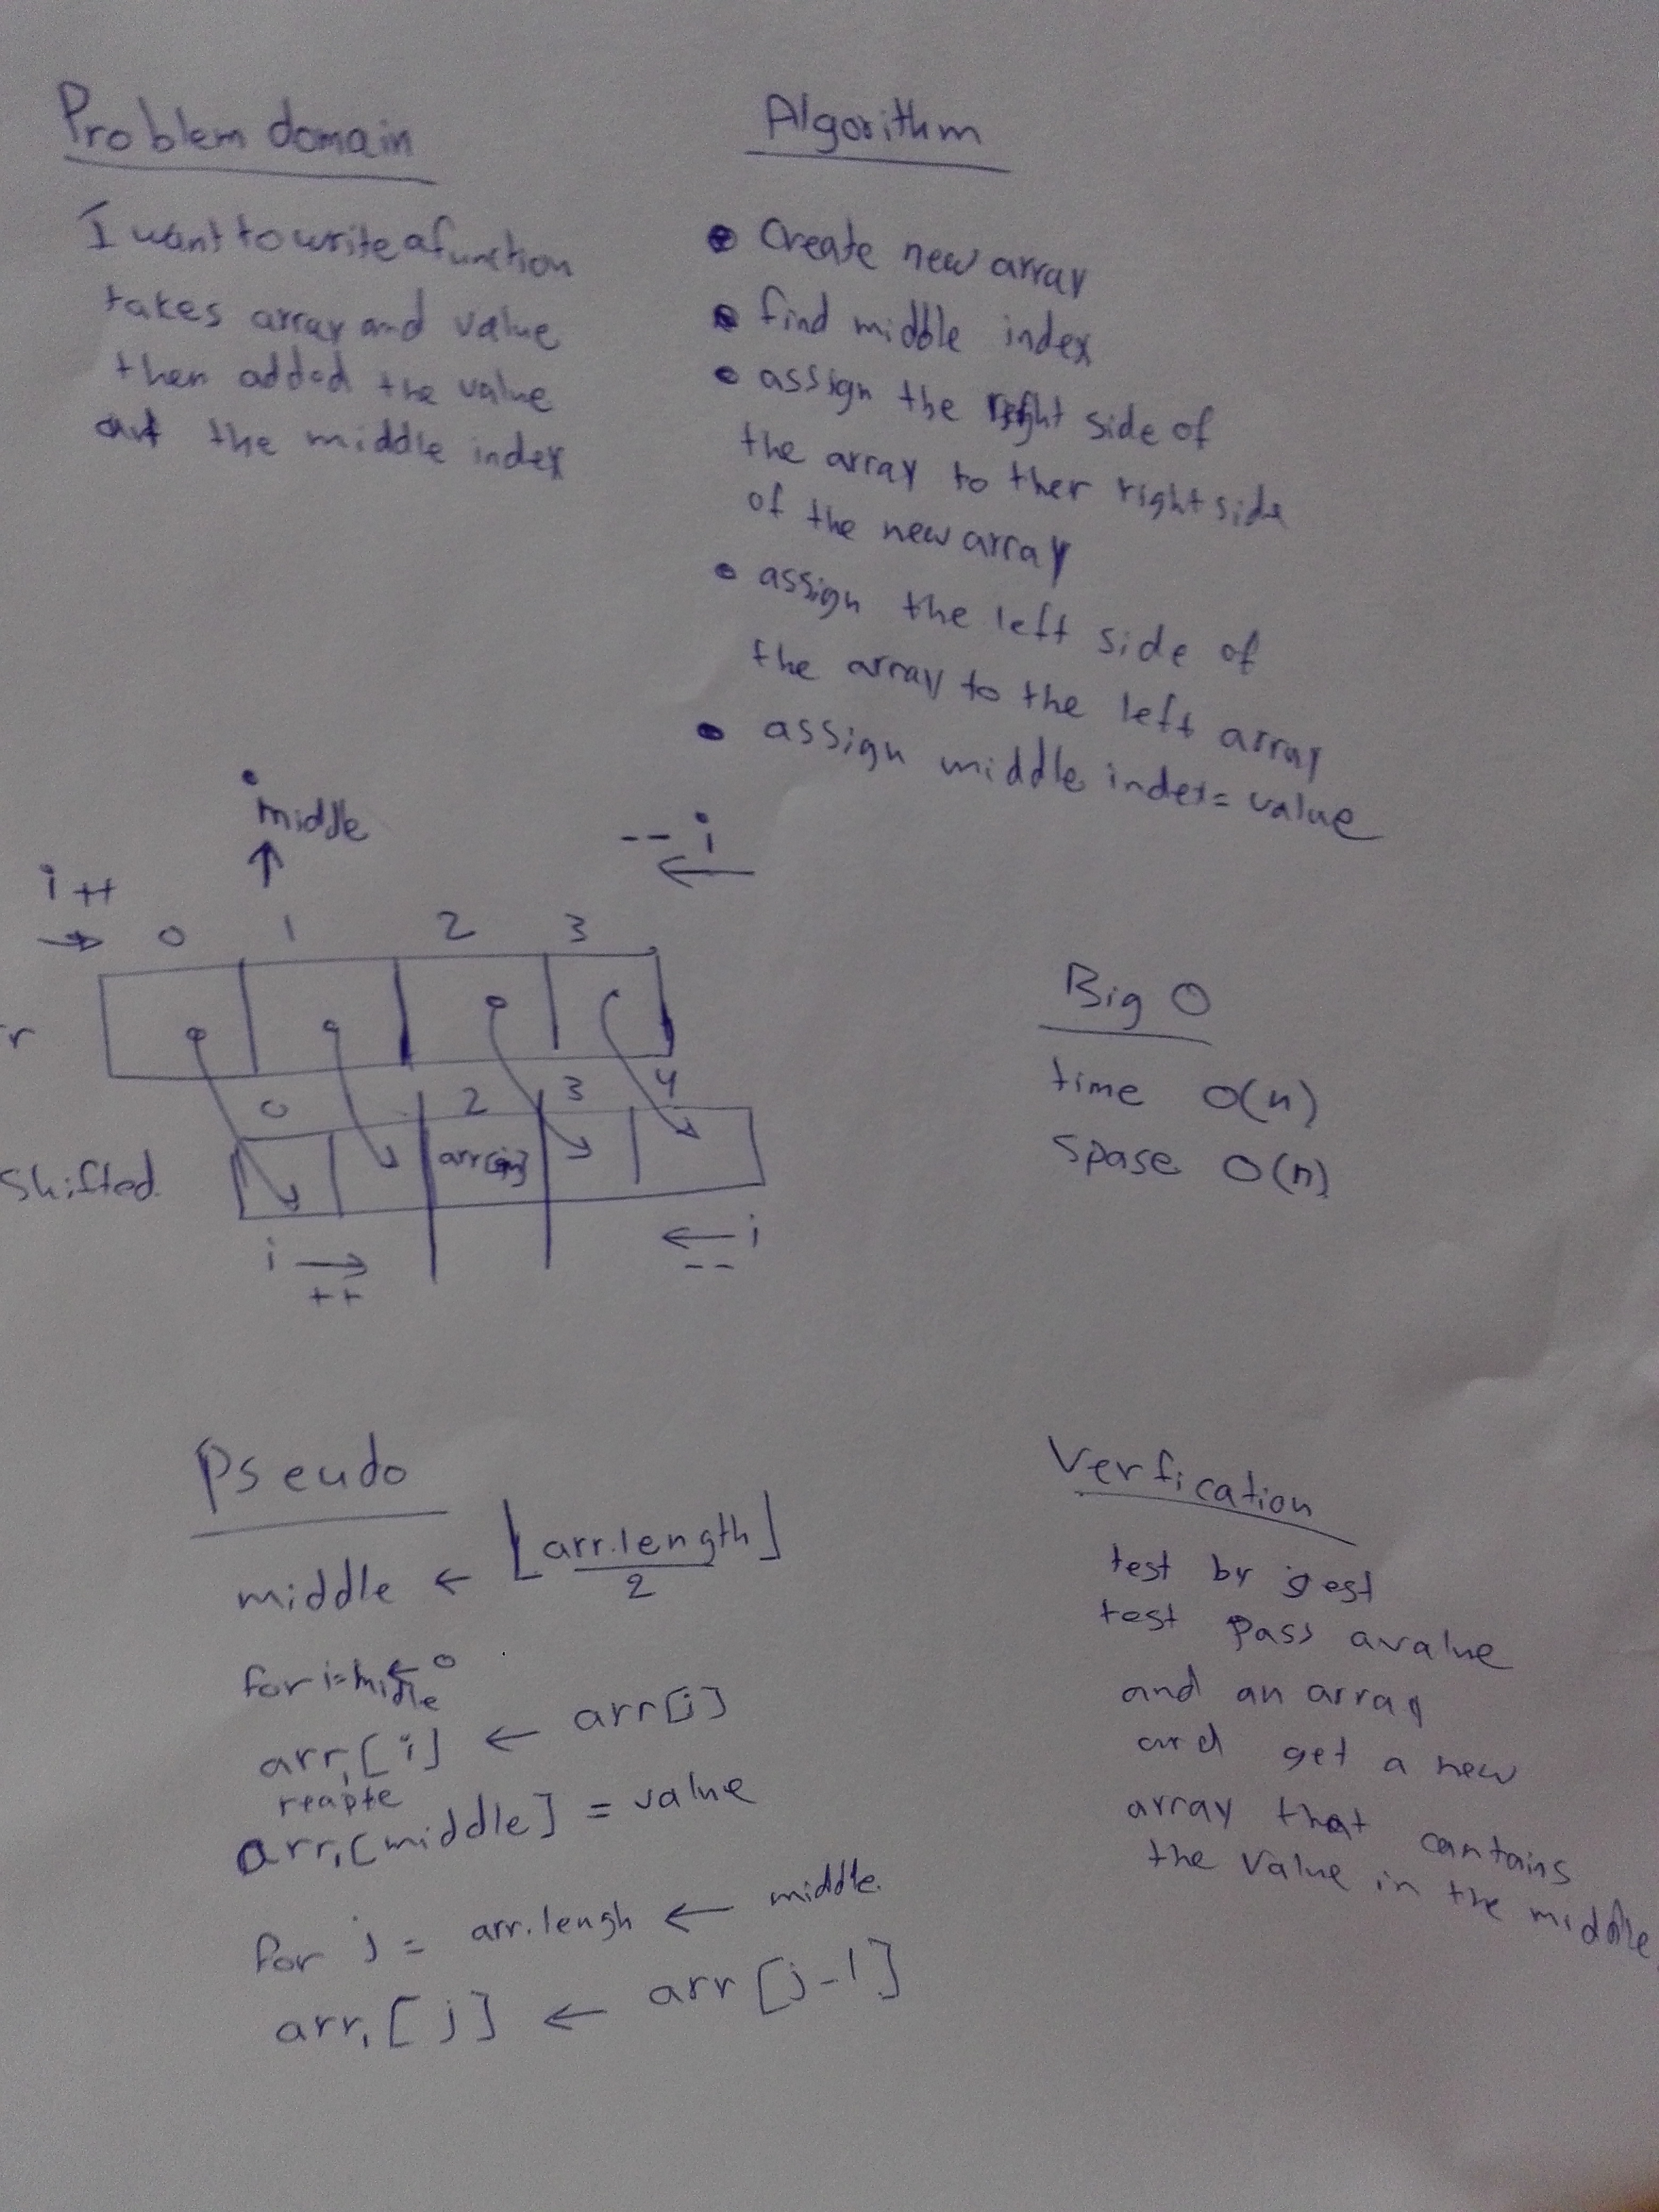 Problem domain
I want to write a function
takes array and value
then added the value
the middle index
Algorithm
Create new array
find middle index
assign the right side of
the array to ther right side
of the new array
assign the left side of
the array to the left array
assign middle index = value
middle
i ++
-- i
0 1 2 3
r
0 2 3 4
Shifted
i
++
i
--
Big O
time O(n)
Spase O(n)
Pseudo
middle ← ⌊arr.length / 2⌋
for i = middle ← 0
arr₁[i] ← arr[i]
reapte
arr₁[middle] = value
for j = arr.lengh ← middle.
arr₁[j] ← arr[j-1]
Verfication
test by gest
test pass a value
and an array
and get a new
array that cantains
the value in the middle